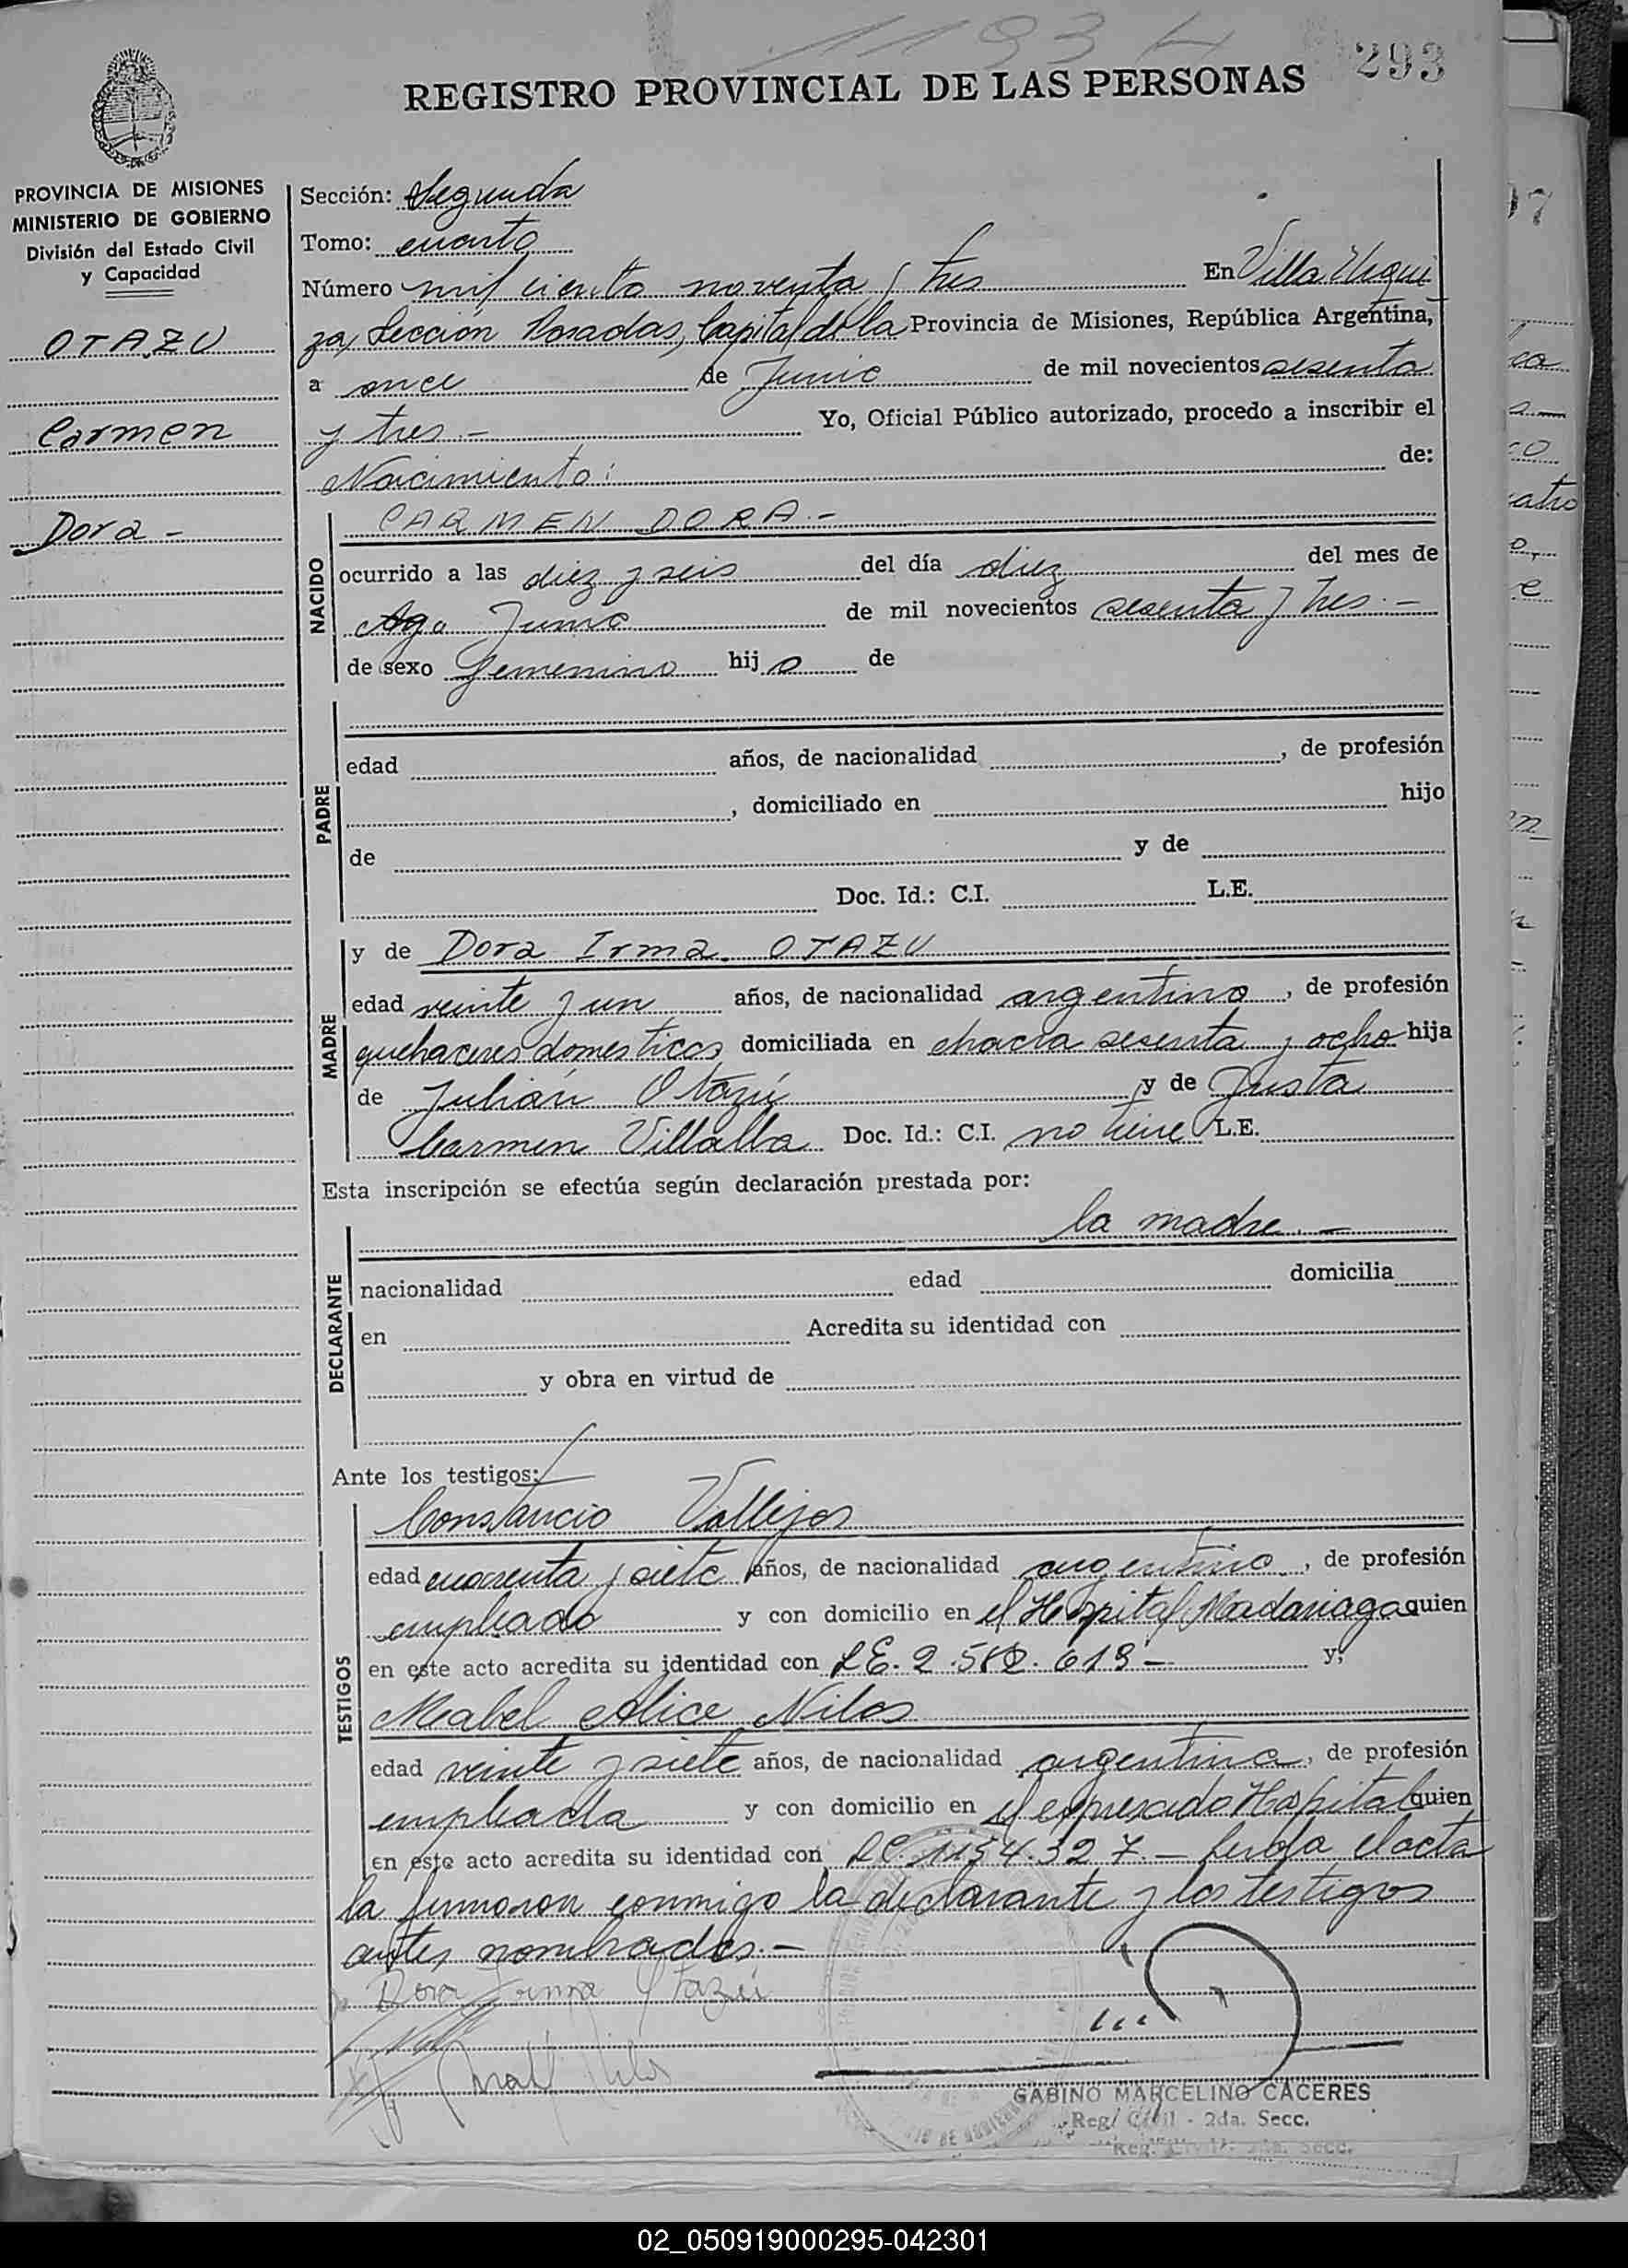 1193 H
293
REGISTRO PROVINCIAL DE LAS PERSONAS
PROVINCIA DE MISIONES
MINISTERIO DE GOBIERNO
División del Estado Civil
y Capacidad
OTAZU
Carmen
Dora -
Sección: Segunda
Tomo: cuarto
Número mil ciento noventa y tres En Villa Urqui
za, Sección Posadas, Capital de la Provincia de Misiones, República Argentina,
a once de Junio de mil novecientos sesenta
y tres.- Yo, Oficial Público autorizado, procedo a inscribir el
Nacimiento: de:
NACIDO
CARMEN DORA.-
ocurrido a las diez y seis del día diez del mes de
Ago Junio de mil novecientos sesenta y tres.-
de sexo femenino hijo de
PADRE
edad años, de nacionalidad , de profesión
, domiciliado en hijo
de y de
Doc. Id.: C.I. L.E.
MADRE
y de Dora Irma OTAZU
edad veinte y un años, de nacionalidad argentina, de profesión
quehaceres domesticos domiciliada en chacra sesenta y ocho hija
de Julián Otazú y de Justa
Carmen Villalba Doc. Id.: C.I. no tiene L.E.
Esta inscripción se efectúa según declaración prestada por:
la madre.-
DECLARANTE
nacionalidad edad domicilia
en Acredita su identidad con
y obra en virtud de
Ante los testigos:
TESTIGOS
Constancio Vallejos
edad cuarenta y siete años, de nacionalidad argentino, de profesión
empleado y con domicilio en el Hospital Madariaga quien
en este acto acredita su identidad con LE. 2.582.613- y;
Mabel Alice Nilos
edad veinte y siete años, de nacionalidad argentina, de profesión
empleada y con domicilio en el expresado Hospital quien
en este acto acredita su identidad con LC. 1154.327.- Leida el acta
la firmaron conmigo la declarante y los testigos
antes nombrados.-
Dora Irma Otazú
GABINO MARCELINO CACERES
Reg. Civil - 2da. Secc.
02_050919000295-042301